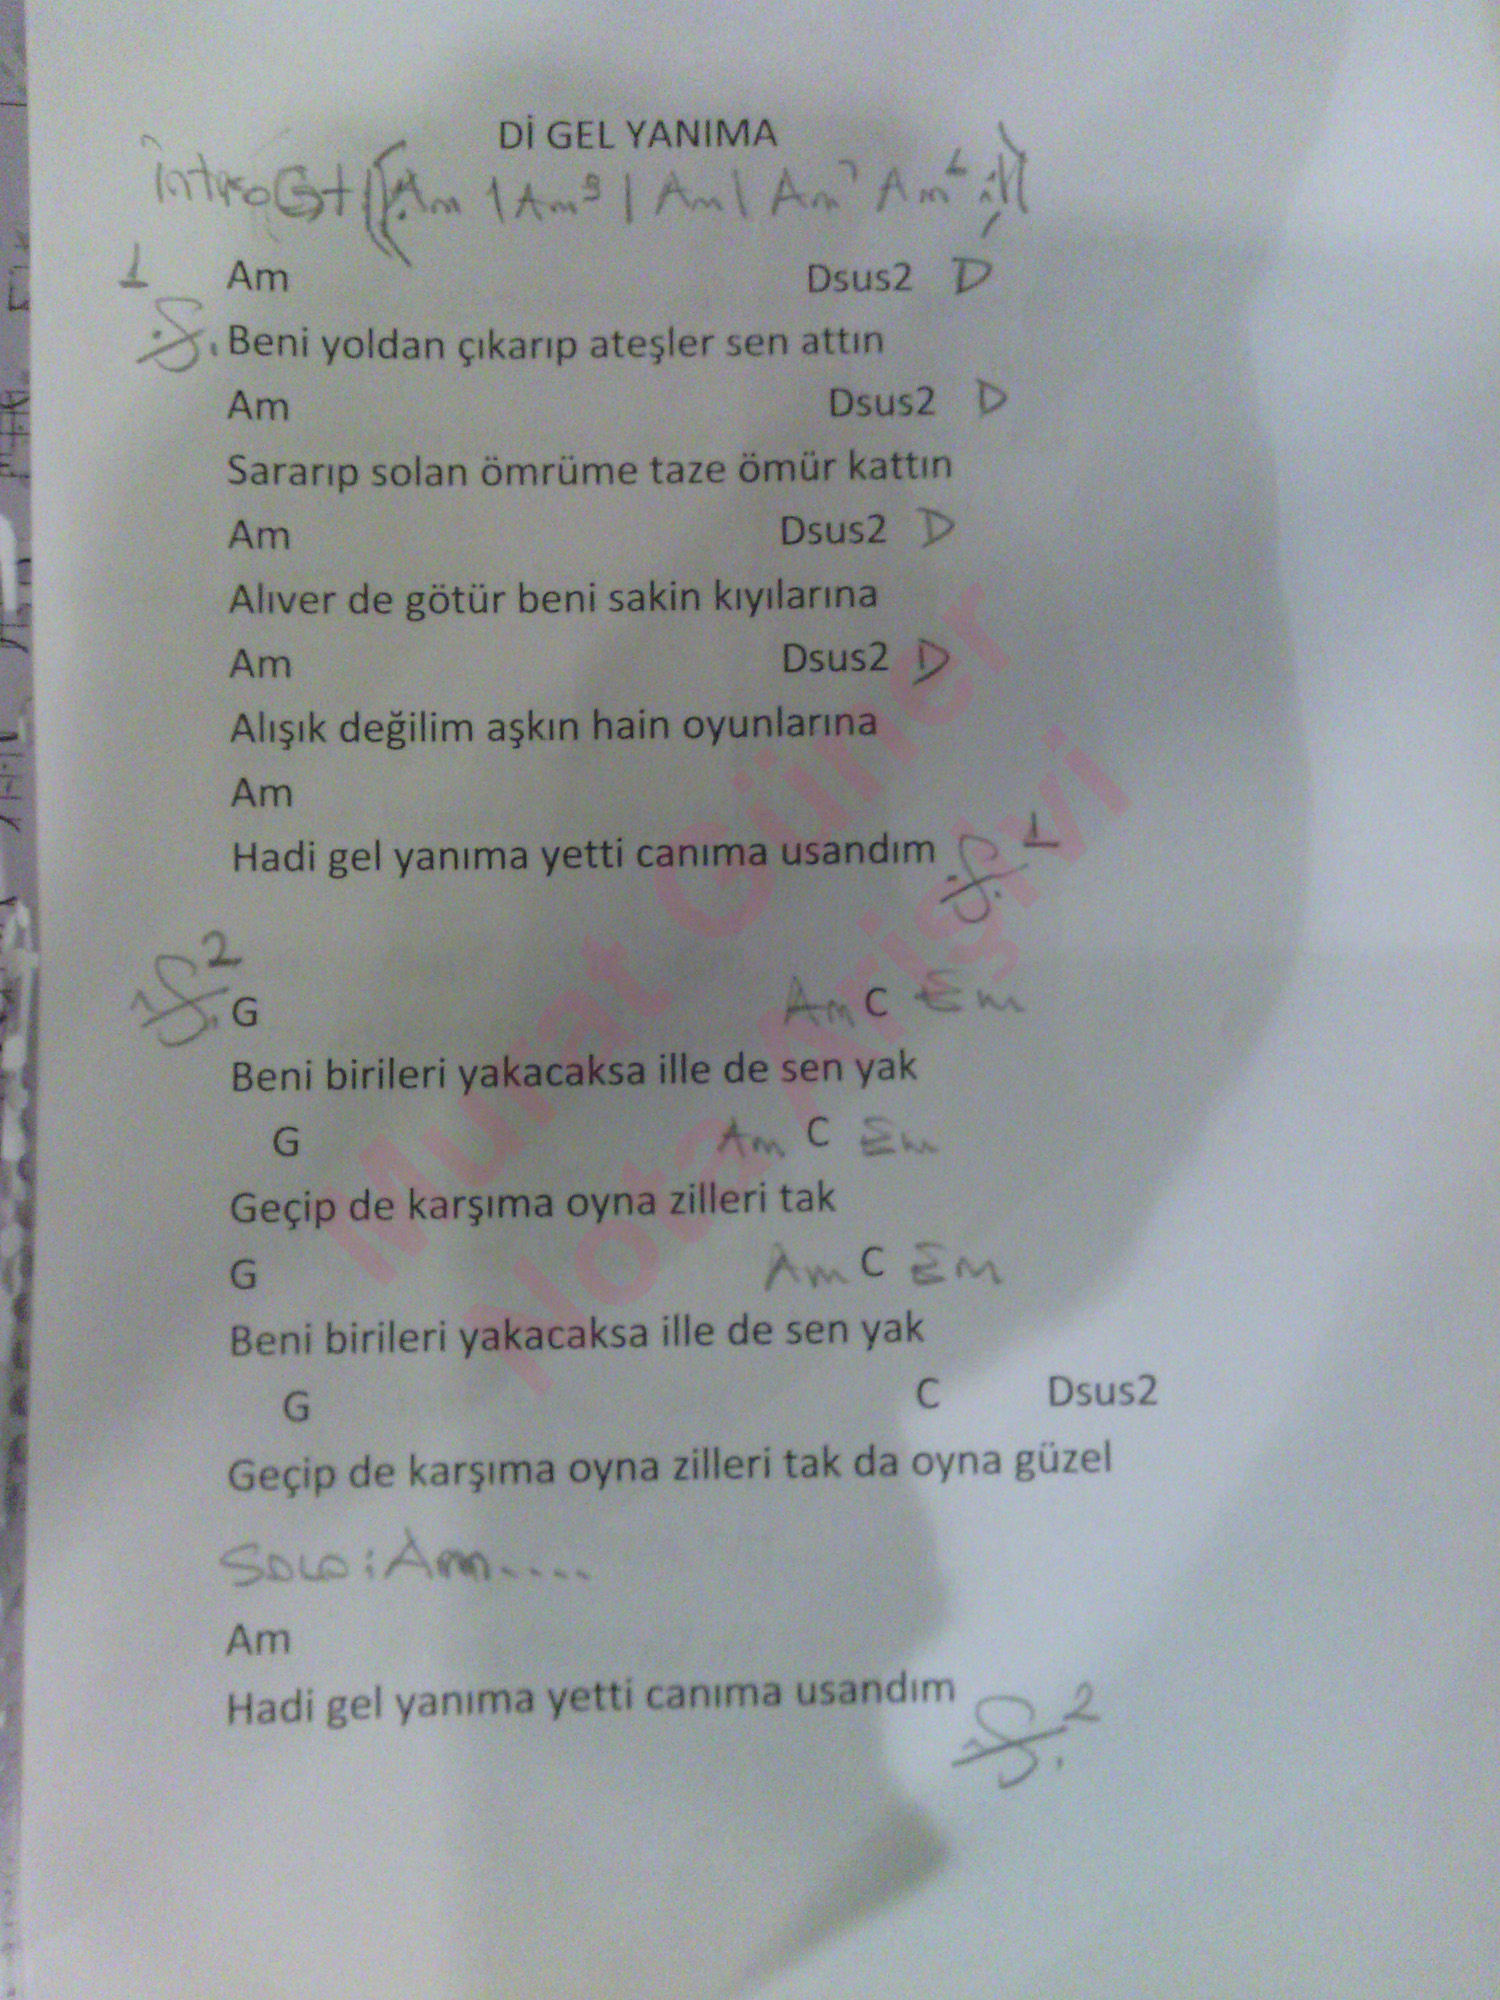 Dİ GEL YANIMA
intro Gt ||: Am | Am9 | Am | Am7 Am6 :||
1 Am Dsus2 D
Beni yoldan çıkarıp ateşler sen attın
Am Dsus2 D
Sararıp solan ömrüme taze ömür kattın
Am Dsus2 D
Alıver de götür beni sakin kıyılarına
Am Dsus2 D
Alışık değilim aşkın hain oyunlarına
Am
Hadi gel yanıma yetti canıma usandım 1
2
G Am C Em
Beni birileri yakacaksa ille de sen yak
G Am C Em
Geçip de karşıma oyna zilleri tak
G Am C Em
Beni birileri yakacaksa ille de sen yak
G C Dsus2
Geçip de karşıma oyna zilleri tak da oyna güzel
SOLO: Am.....
Am
Hadi gel yanıma yetti canıma usandım 2
Murat Güner
Nota Arişivi